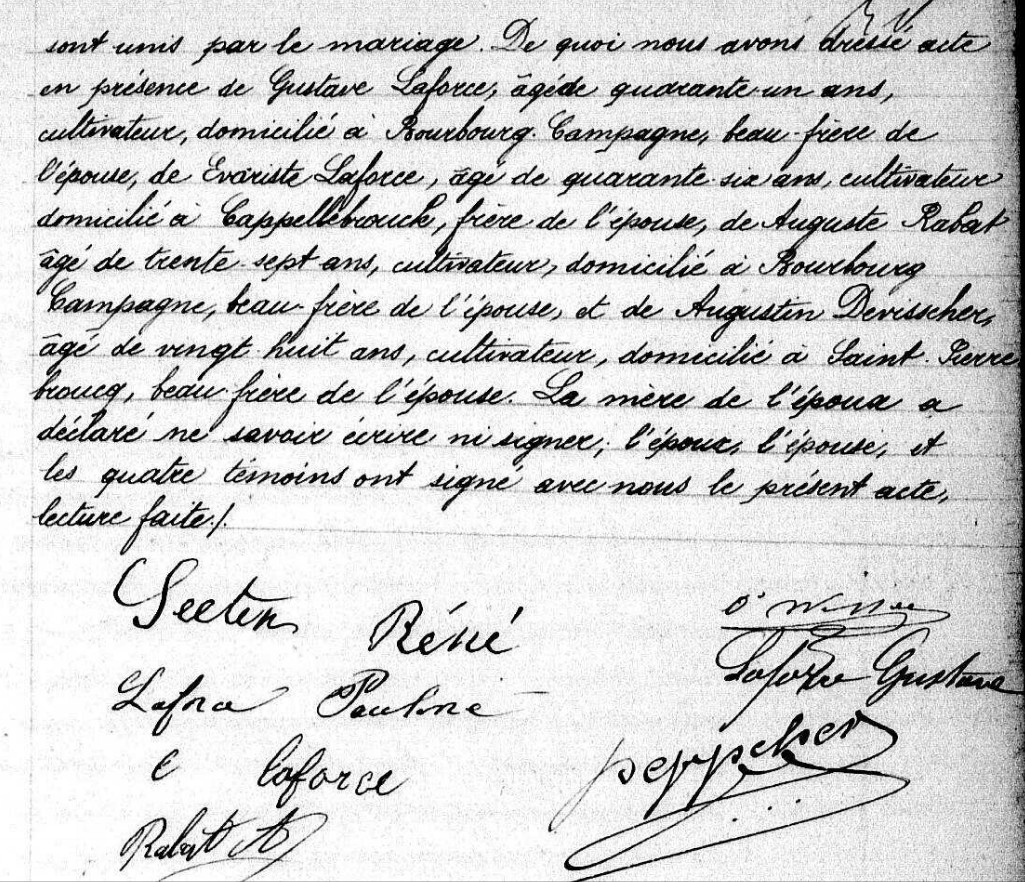 sont unis par le mariage. De quoi nous avons dressé acte
en présence de Gustave Laforce, âgé de quarante un ans,
cultivateur, domicilié à Bourbourg-Campagne, beau-frère de
l'épouse, de Evariste Laforce, âgé de quarante-six ans, cultivateur
domicilié à Cappellebrouck, frère de l'épouse, de Auguste Rabat
âgé de trente-sept ans, cultivateur, domicilié à Bourbourg
Campagne, beau-frère de l'épouse, et de Augustin Devisscher,
âgé de vingt huit ans, cultivateur, domicilié à Saint-Pierre
broucq, beau-frère de l'épouse. La mère de l'époux a
déclaré ne savoir écrire ni signer, l'époux, l'épouse, et
les quatre témoins ont signé avec nous le présent acte,
lecture faite./.
Seeten Réné
Laforce Pauline
Laforce Gustave
E Laforce
Rabat A